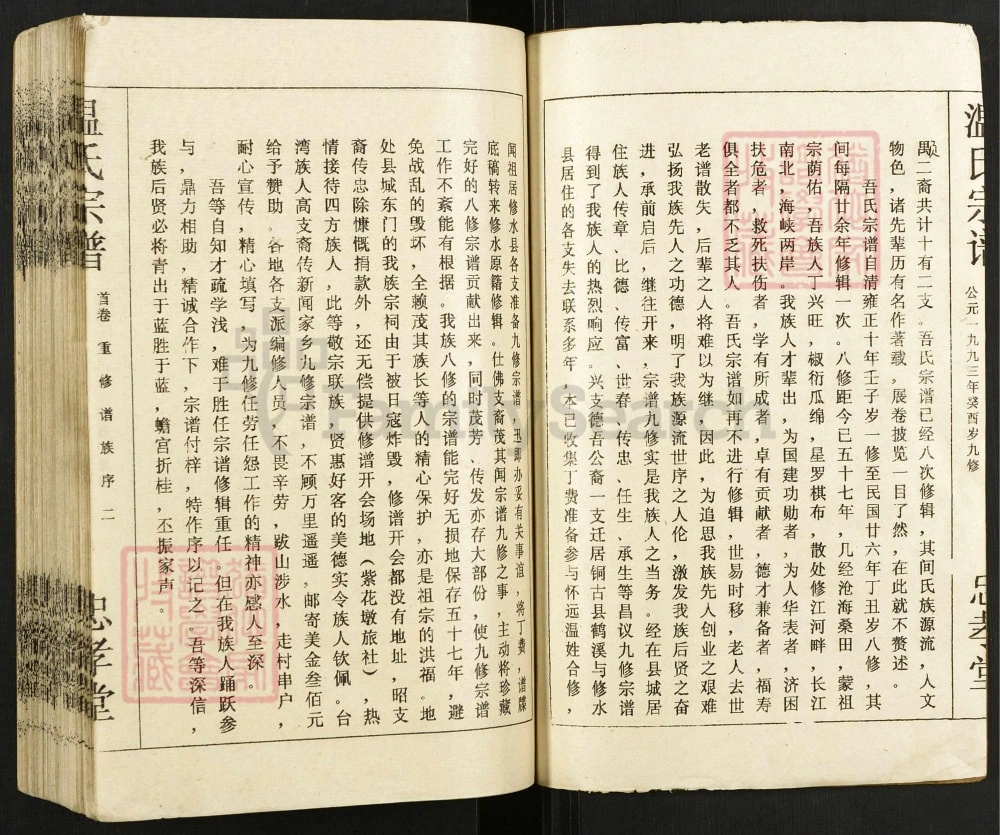 温氏宗谱
公元一九九三年癸酉岁九修
忠孝堂
禺二裔共计十有二支。吾氏宗谱已经八次修辑,其间氏族源流,人文
物色,诸先辈历有名作著载,展卷披览一目了然,在此就不赘述。
吾氏宗谱自清雍正十年壬子岁一修至民国廿六年丁丑岁八修,其
间每隔廿余年修辑一次。八修距今已五十七年,几经沧海桑田,蒙祖
宗荫佑,吾族人丁兴旺,椒衍瓜绵,星罗棋布,散处修江河畔,长江
南北,海峡两岸。我族人才辈出,为国建功勋者,为人华表者,济困
扶危者,救死扶伤者,学有所成者,卓有贡献者,德才兼备者,福寿
俱全者都不乏其人。吾氏宗谱如再不进行修辑,世易时移,老人去世
老谱散失,后辈之人将难以为继,因此,为追思我族先人创业之艰难
弘扬我族先人之功德,明了我族源流世序之人伦,激发我族后贤之奋
进,承前启后,继往开来,宗谱九修实是我族人之当务。经在县城居
住族人传章、比德、传富、世春、传忠、任生、承生等昌议九修宗谱
得到了我族人的热烈响应。兴支德吾公裔一支迁居铜古县鹤溪与修水
县居住的各支失去联系多年,本已收集丁费准备参与怀远温姓合修,
闻祖居修水县各支准备九修宗谱,迅即办妥有关事谊,将丁费,谱牒
底稿转来修水原籍修辑。仕佛支裔茂其闻宗谱九修之事,主动将珍藏
完好的八修宗谱贡献出来,同时茂芳、传发亦存大部份,使九修宗谱
工作不紊能有根据。我族八修的宗谱能完好无损地保存五十七年,避
免战乱的毁坏,全赖茂其族长等人的精心保护,亦是祖宗的洪福。地
处县城东门的我族宗祠由于被日寇炸毁,修谱开会都没有地址,昭支
裔传忠除慷慨捐款外,还无偿提供修谱开会场地(紫花墩旅社),热
情接待四方族人,此等敬宗联族,贤惠好客的美德实令族人钦佩。台
湾族人高支裔传新闻家乡九修宗谱,不顾万里遥遥,邮寄美金叁佰元
给予赞助。各地各支派编修人员,不畏辛劳,跋山涉水,走村串户,
耐心宣传,精心填写,为九修任劳任怨工作的精神亦感人至深。
吾等自知才疏学浅,难于胜任宗谱修辑重任,但在我族人踊跃参
与,鼎力相助,精诚合作下,宗谱付梓,特作序以记之。吾等深信,
我族后贤必将青出于蓝胜于蓝,蟾宫折桂,丕振家声。
温氏宗谱
首卷 重修谱族序 二
忠孝堂
FamilySearch